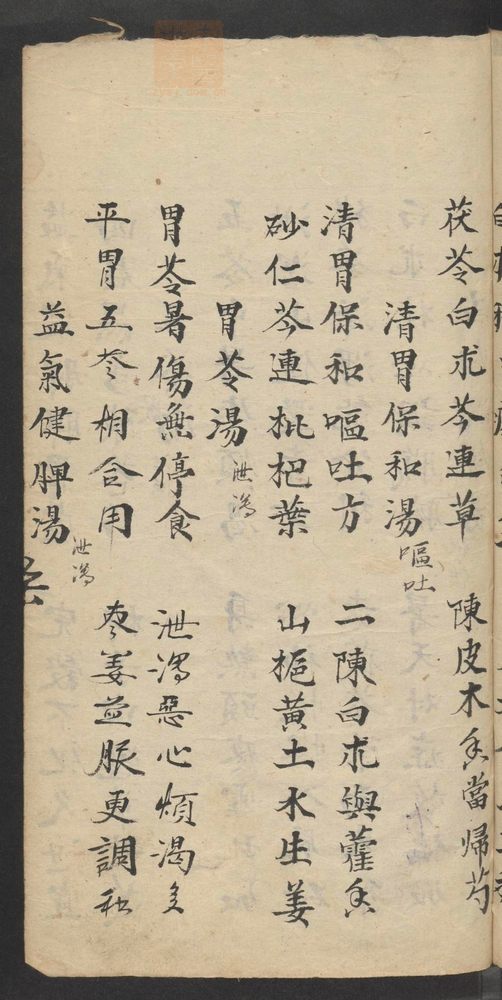 茯苓白朮芩連草　陳皮木香當歸芍
清胃保和湯 嘔吐
清胃保和嘔吐方　二陳白朮與藿香
砂仁芩連枇杷葉　山梔黃土水生姜
胃苓湯 泄瀉
胃苓暑傷無停食　泄瀉惡心煩渴多
平胃五苓相合用　枣姜並服更調和
益氣健脾湯 泄瀉